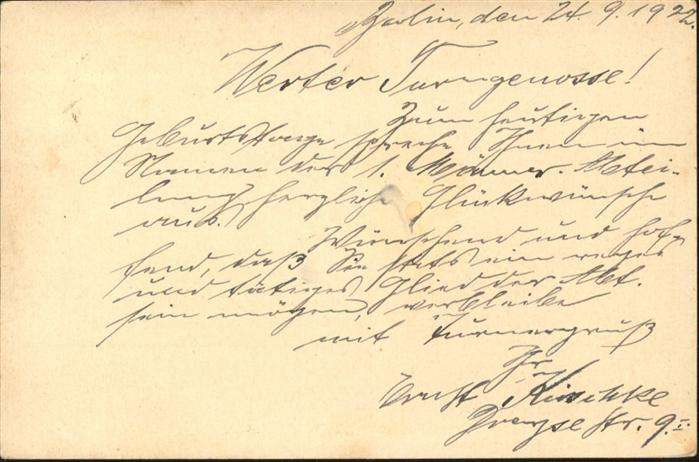 Berlin, den 24. 9. 1922.
Werter Turngenosse!
Zum heutigen
Geburtstage spreche Ihnen im
Namen der 1. Männer-Abtei-
lung herzliche Glückwünsche
aus.
Wünschend und hof-
fend, daß Sie stets ein reges
und tätiges Glied der Abt.
sein mögen, verbleibe
mit Turnergruß
Ihr
Ernst
Dreyse Str. 9. I.